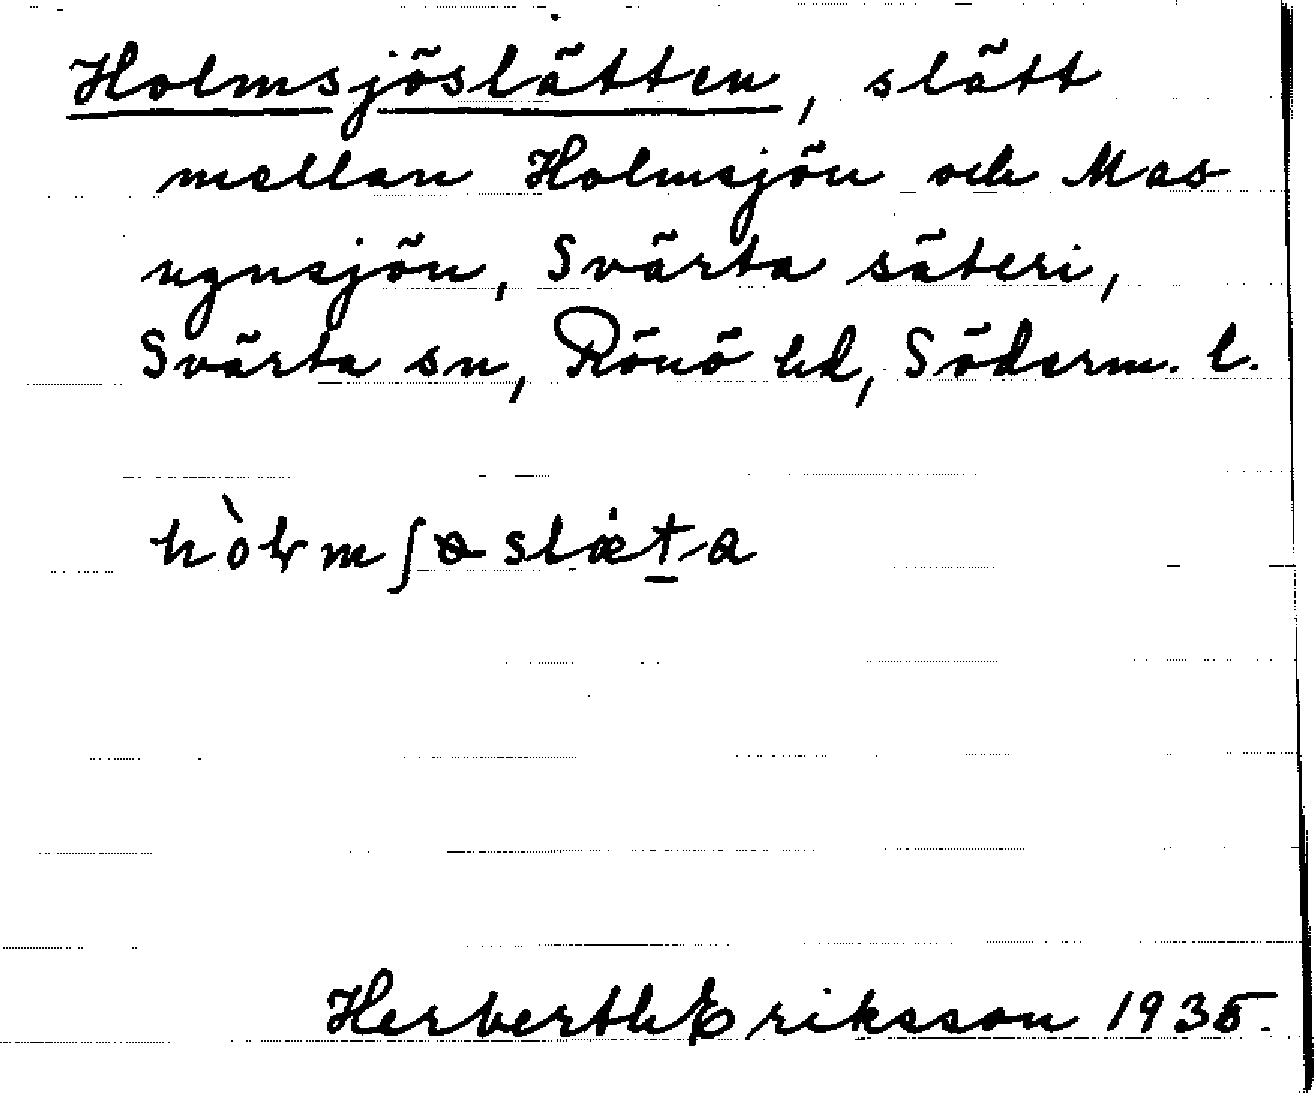 Holmsjöslätten, slätt
mellan Holmsjön och Mas
ugnsjön, Svärta säteri,
Svärta sn, Rönö hd, Söderm. l.
Herberth Eriksson 1935.